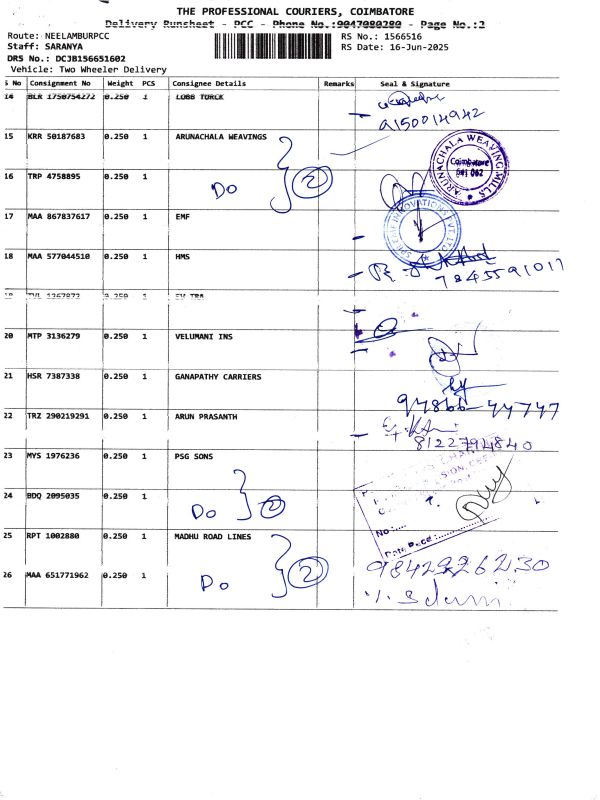 THE PROFESSIONAL COURIERS, COIMBATORE
Delivery Runsheet - PCC - Phone No.:9047080280 - Page No.:2
Route: NEELAMBURPCC
RS No.: 1566516
Staff: SARANYA
RS Date: 16-Jun-2025
DRS No.: DCJB156651602
Vehicle: Two Wheeler Delivery
S No Consignment No Weight PCS Consignee Details Remarks Seal & Signature
14 BLR 1750754272 0.250 1 LOBB TURCK
9150014942
15 KRR 50187683 0.250 1 ARUNACHALA WEAVINGS
ARUNACHALA WEAVING MILLS
Coimbatore
641 062
16 TRP 4758895 0.250 1 Do 2
17 MAA 867837617 0.250 1 EMF
18 MAA 577044510 0.250 1 HMS
7845591017
19 TVL 0.250 1
20 MTP 3136279 0.250 1 VELUMANI INS
21 HSR 7387338 0.250 1 GANAPATHY CARRIERS
94866-44747
22 TRZ 290219291 0.250 1 ARUN PRASANTH
8122794840
23 MYS 1976236 0.250 1 PSG SONS
24 BDQ 2095035 0.250 1 Do 2
No:
Date Recd:
25 RPT 1002880 0.250 1 MADHU ROAD LINES
9842926230
26 MAA 651771962 0.250 1 Do 2